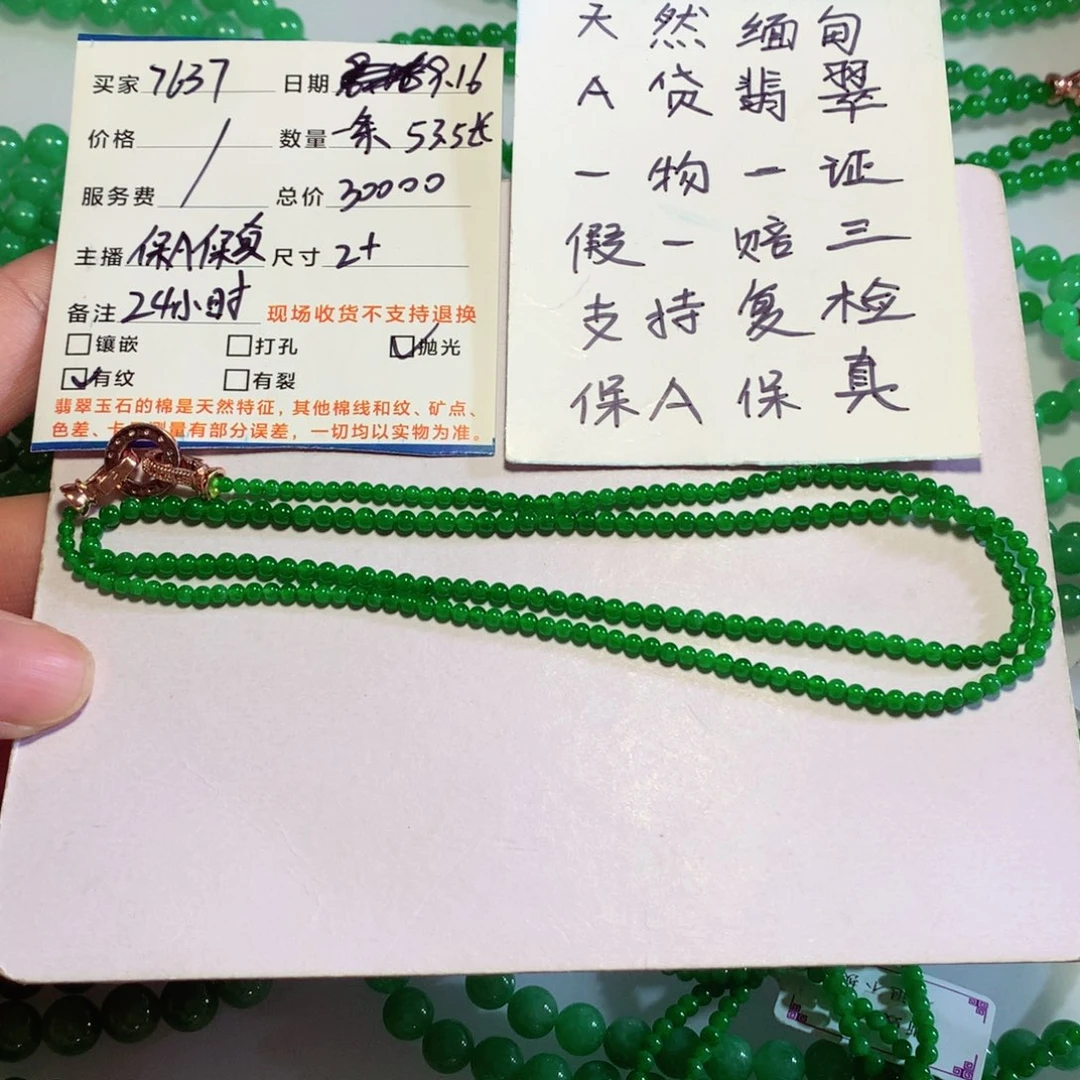 买家 7637 日期 9.16
价格 / 数量 一条 53.5长
服务费 总价 30000
主播 保A保真 尺寸 2+
备注 24小时 现场收货不支持退换
镶嵌 打孔 抛光
有纹 有裂
翡翠玉石的棉是天然特征，其他棉线和纹、矿点、
色差、卡 测量有部分误差，一切均以实物为准。
天然缅甸
A货翡翠
一物一证
假一赔三
支持复检
保A保真